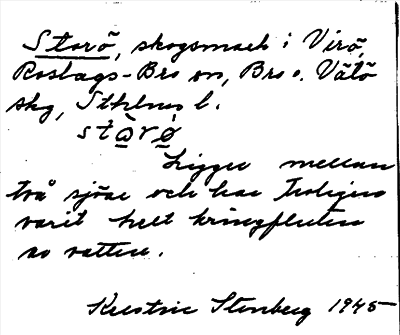 Storö, skogsmark i Virö,
Roslags-Bro sn, Bro o. Vätö
skg, Sthlms l.
stòrø
Ligger mellan
två sjöar och har troligen
varit helt kringfluten
av vatten.
Kerstin Stenberg 1945